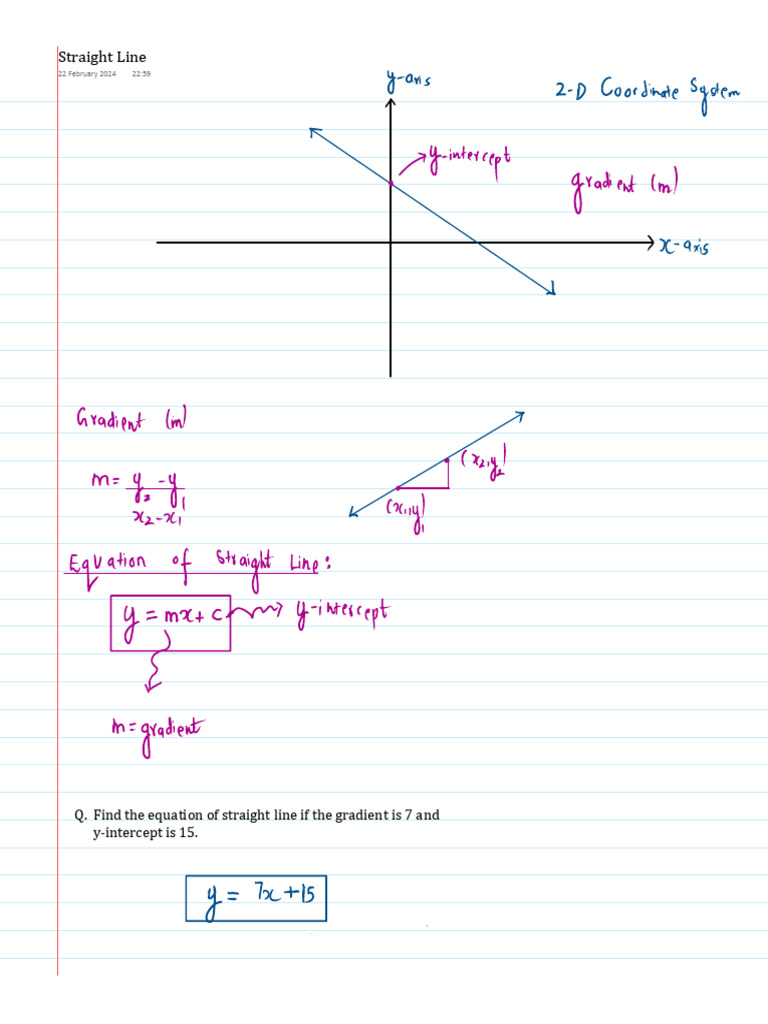 Straight Line
22 February 2024 22:59
y-axis
2-D Coordinate System
y-intercept
gradient (m)
x-axis
Gradient (m)
m = y₂ - y₁
x₂ - x₁
(x₂, y₂)
(x₁, y₁)
Equation of Straight Line:
y = mx + c
y-intercept
m = gradient
Q. Find the equation of straight line if the gradient is 7 and
y-intercept is 15.
y = 7x + 15